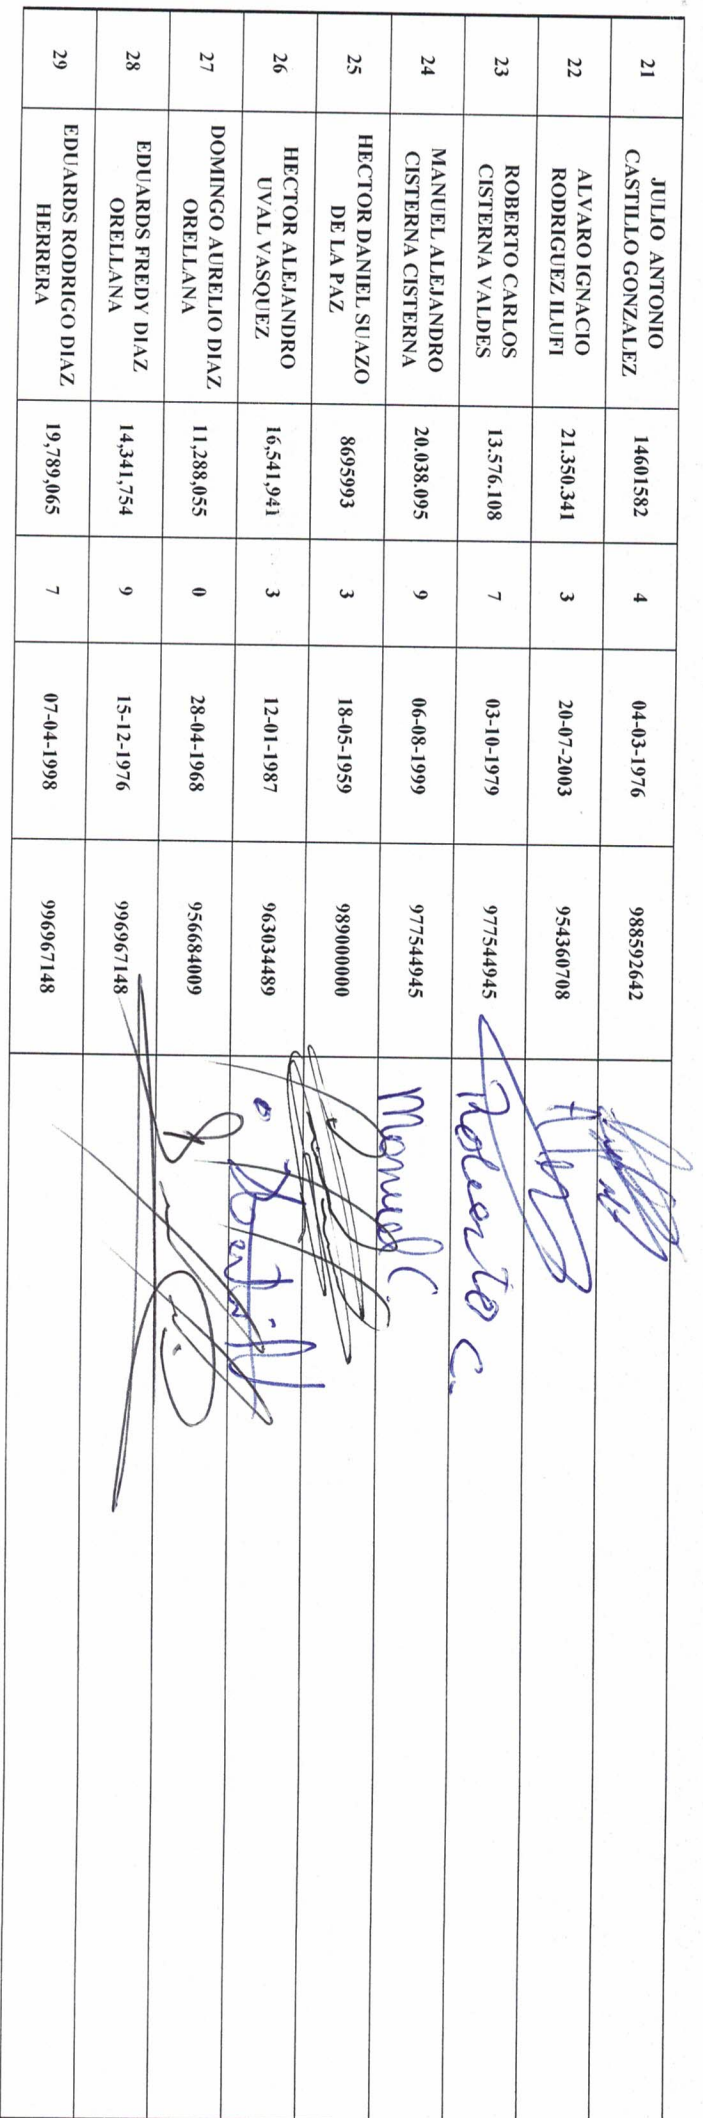 21
JULIO ANTONIO
CASTILLO GONZALEZ
14601582
4
04-03-1976
988592642
22
ALVARO IGNACIO
RODRIGUEZ ILUFI
21.350.341
3
20-07-2003
954360708
23
ROBERTO CARLOS
CISTERNA VALDES
13.576.108
7
03-10-1979
977544945
Roberto C.
24
MANUEL ALEJANDRO
CISTERNA CISTERNA
20.038.095
9
06-08-1999
977544945
Manuel C.
25
HECTOR DANIEL SUAZO
DE LA PAZ
8695993
3
18-05-1959
989000000
26
HECTOR ALEJANDRO
UVAL VASQUEZ
16,541,941
3
12-01-1987
963034489
27
DOMINGO AURELIO DIAZ
ORELLANA
11,288,055
0
28-04-1968
956684009
28
EDUARDS FREDY DIAZ
ORELLANA
14,341,754
9
15-12-1976
996967148
29
EDUARDS RODRIGO DIAZ
HERRERA
19,789,065
7
07-04-1998
996967148